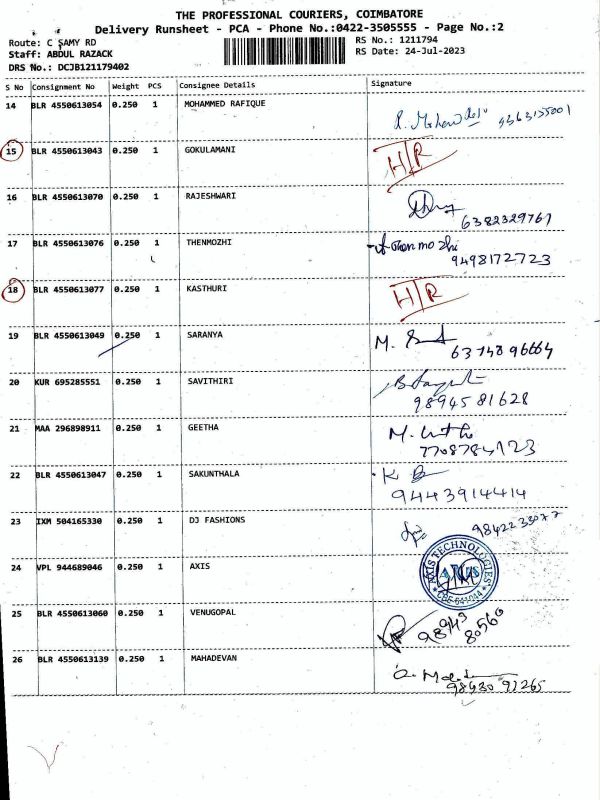 THE PROFESSIONAL COURIERS, COIMBATORE
Delivery Runsheet - PCA - Phone No.:0422-3505555 - Page No.:2
Route: C SAMY RD RS No.: 1211794
Staff: ABDUL RAZACK RS Date: 24-Jul-2023
DRS No.: DCJB121179402
S No Consignment No Weight PCS Consignee Details Signature
14 BLR 4550613054 0.250 1 MOHAMMED RAFIQUE
15 BLR 4550613043 0.250 1 GOKULAMANI H/R
16 BLR 4550613070 0.250 1 RAJESHWARI
6382329761
17 BLR 4550613076 0.250 1 THENMOZHI
9498172723
18 BLR 4550613077 0.250 1 KASTHURI H/R
19 BLR 4550613049 0.250 1 SARANYA M.
20 KUR 695285551 0.250 1 SAVITHIRI
9894581628
21 MAA 296898911 0.250 1 GEETHA
7708784123
22 BLR 4550613047 0.250 1 SAKUNTHALA K
9443914414
23 IXM 504165330 0.250 1 DJ FASHIONS 9842233077
24 VPL 944689046 0.250 1 AXIS AXIS TECHNOLOGIES
25 BLR 4550613060 0.250 1 VENUGOPAL
98943
80560
26 BLR 4550613139 0.250 1 MAHADEVAN
98430 91265